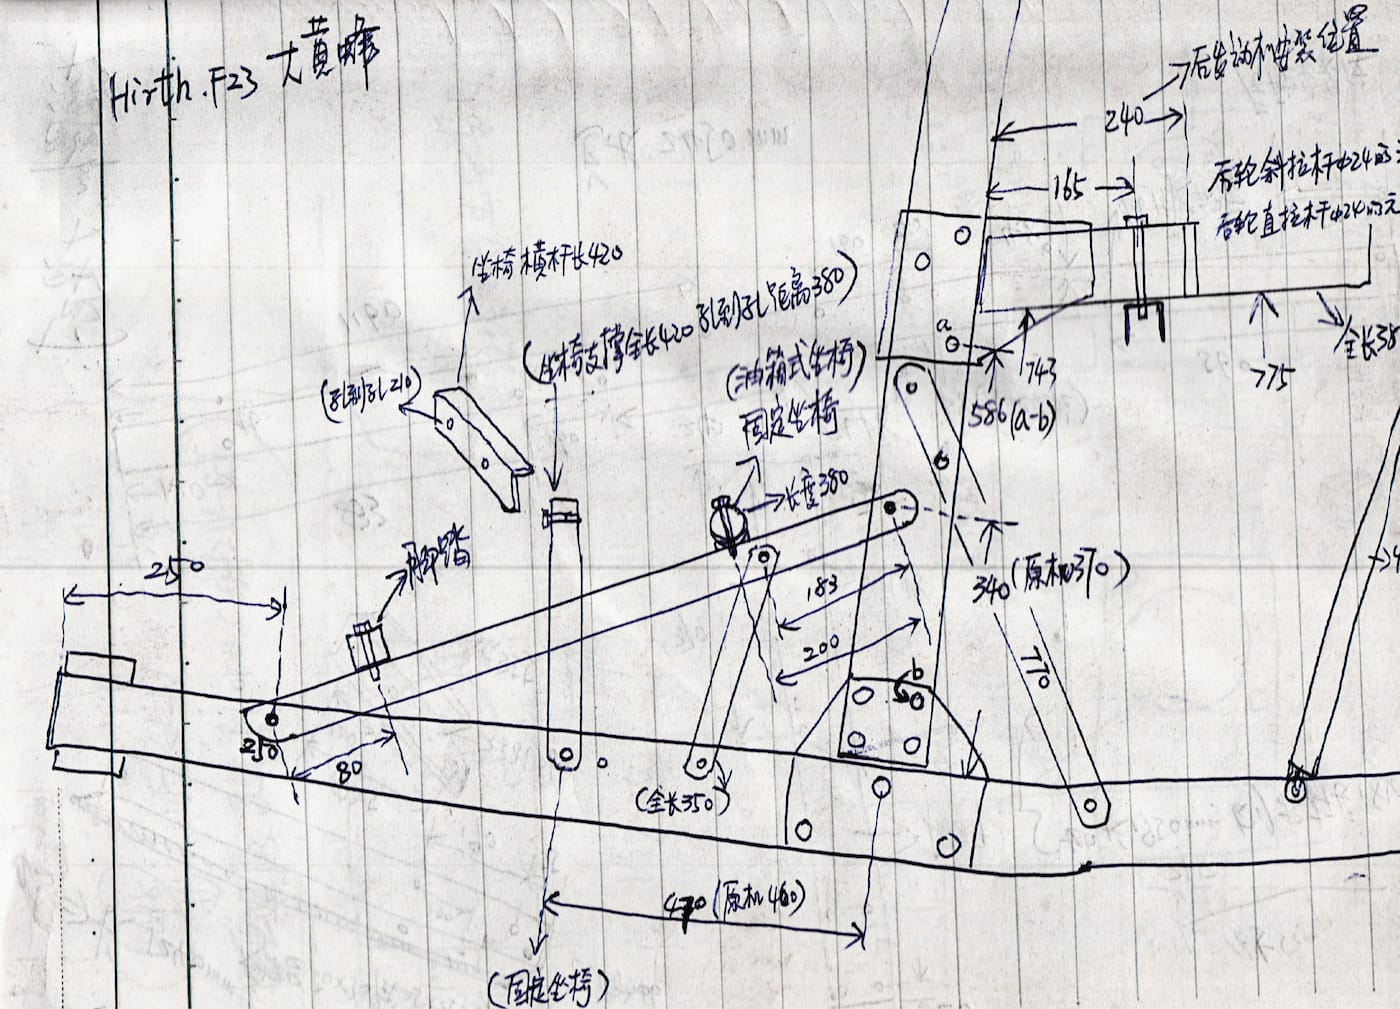 Hirth.F23 大黄蜂
后发动机安装位置
240
165
后轮斜拉杆Φ24的
后轮直拉杆Φ24的元
坐椅横杆长420
(坐椅支撑全长420 孔到孔距离380)
(孔到孔210)
(油箱式坐椅)
固定坐椅
长度380
a
743
586(a-b)
775
全长38
脚踏
250
183
200
340(原机370)
770
b
250
80
(全长350)
470(原机460)
(固定坐椅)